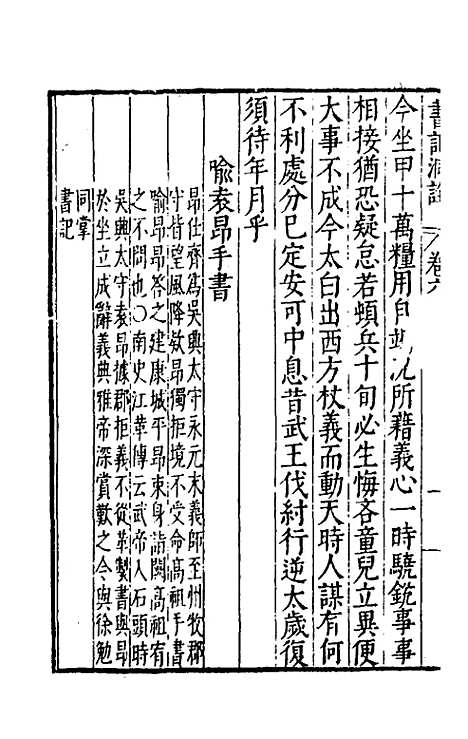 書記洞詮 卷六
今坐甲十萬糧用自竭況所藉義心一時驍銳事事
相接猶恐疑怠若頓兵十旬必生悔吝童兒立異便
大事不成今太白出西方杖義而動天時人謀有何
不利處分已定安可中息昔武王伐紂行逆太歲復
須待年月乎
喻袁昂手書
昂仕齊爲吳興太守永元末義師至州牧郡
守皆望風降欵昂獨拒境不受命高祖手書
喻昂昂答之建康城平昂束身詣闕高祖宥
之不問也○南史江革傳云武帝入石頭時
吳興太守袁昂據郡拒義不從革製書與昂
於坐立成辭義典雅帝深賞歎之令與徐勉
同掌
書記